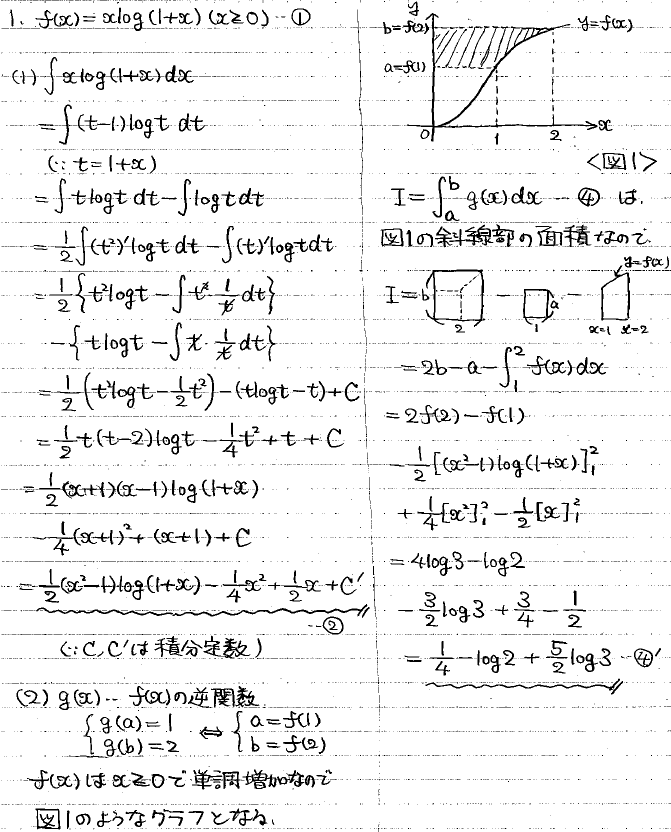 1. f(x)=xlog(1+x) (x≧0) ‥①
(1) ∫xlog(1+x)dx
=∫(t-1)logt dt
(∵ t=1+x)
=∫tlogt dt-∫logtdt
=1/2∫(t²)'logt dt-∫(t)'logtdt
=1/2{t²logt-∫t²・1/t dt}
-{tlogt-∫t・1/t dt}
=1/2(t²logt-1/2t²)-(tlogt-t)+C
=1/2t(t-2)logt-1/4t²+t+C
=1/2(x+1)(x-1)log(1+x)
-1/4(x+1)²+(x+1)+C
=1/2(x²-1)log(1+x)-1/4x²+1/2x+C'
‥②
(∵C,C'は積分定数)
(2) g(x)‥f(x)の逆関数
{g(a)=1 ⇔ {a=f(1)
{g(b)=2 {b=f(2)
f(x)はx≧0で単調増加なので
図1のようなグラフとなる.
y
b=f(2)
y=f(x)
a=f(1)
0 1 2 x
<図1>
I=∫ₐᵇ g(x)dx ‥④ は,
図1の斜線部の面積なので
y=f(x)
I= b 2 - a 1 - x=1 x=2
=2b-a-∫₁² f(x)dx
=2f(2)-f(1)
-1/2[(x²-1)log(1+x)]₁²
+1/4[x²]₁²-1/2[x]₁²
=4log3-log2
-3/2log3+3/4-1/2
=1/4-log2+5/2log3 ‥④'